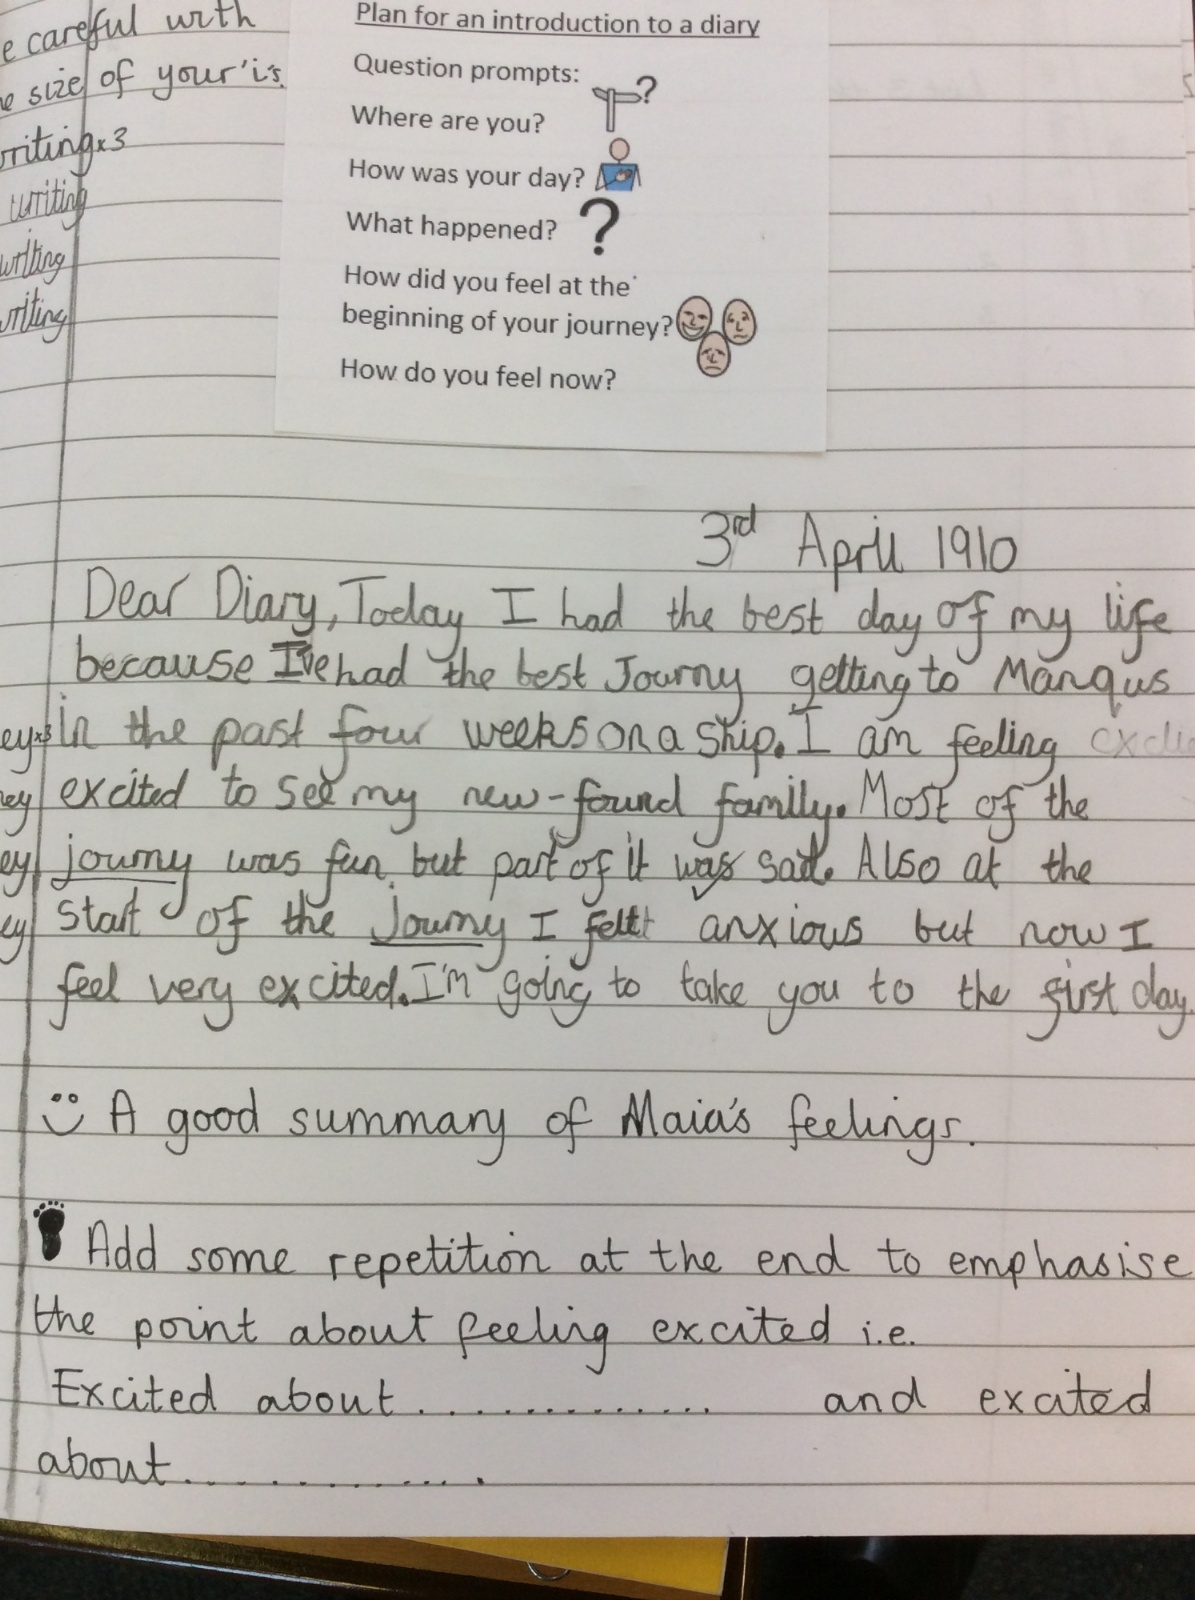 careful with
size of your 'i's.
writing x3
writing
writing
writing
Plan for an introduction to a diary
Question prompts:
?
Where are you?
How was your day?
What happened? ?
How did you feel at the
beginning of your journey?
How do you feel now?
3rd April 1910
Dear Diary, Today I had the best day of my life
because I've had the best Journy getting to Manqus
in the past four weeks on a ship. I am feeling
excited to see my new-found family. Most of the
journy was fun but part of it was sad. Also at the
start of the journy I felt anxious but now I
feel very excited. I'm going to take you to the first day.
A good summary of Maia's feelings.
Add some repetition at the end to emphasise
the point about feeling excited i.e.
Excited about ............. and excited
about .............